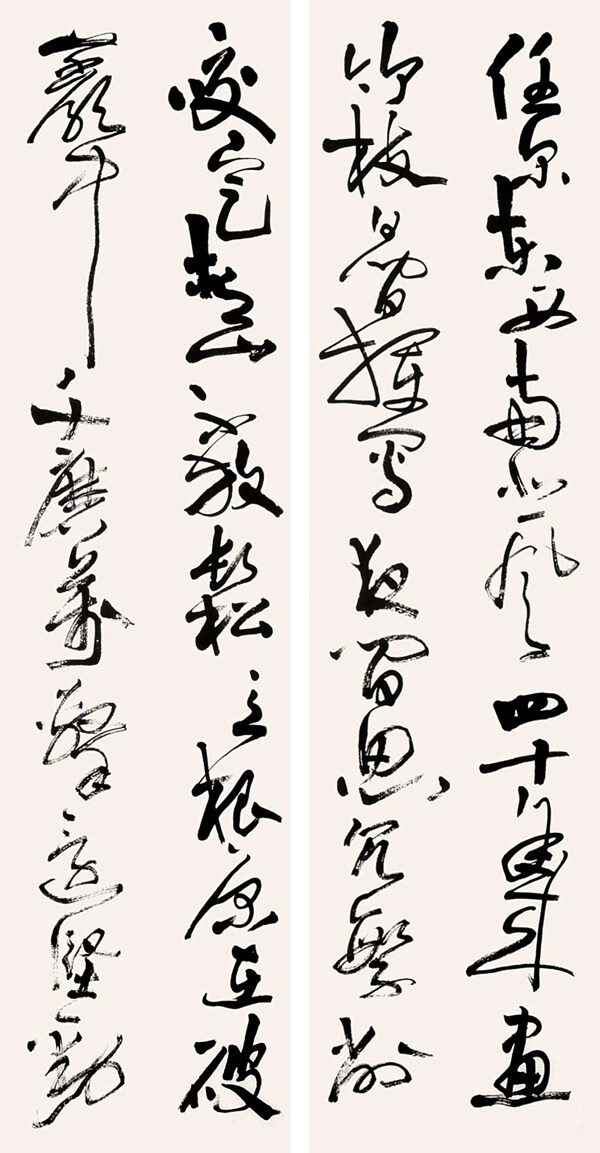 咬定青山不放鬆立根原在破
巖中千磨萬擊還堅勁
任尔東西南北風四十年來畫
竹枝日間揮寫夜間思冗繁削